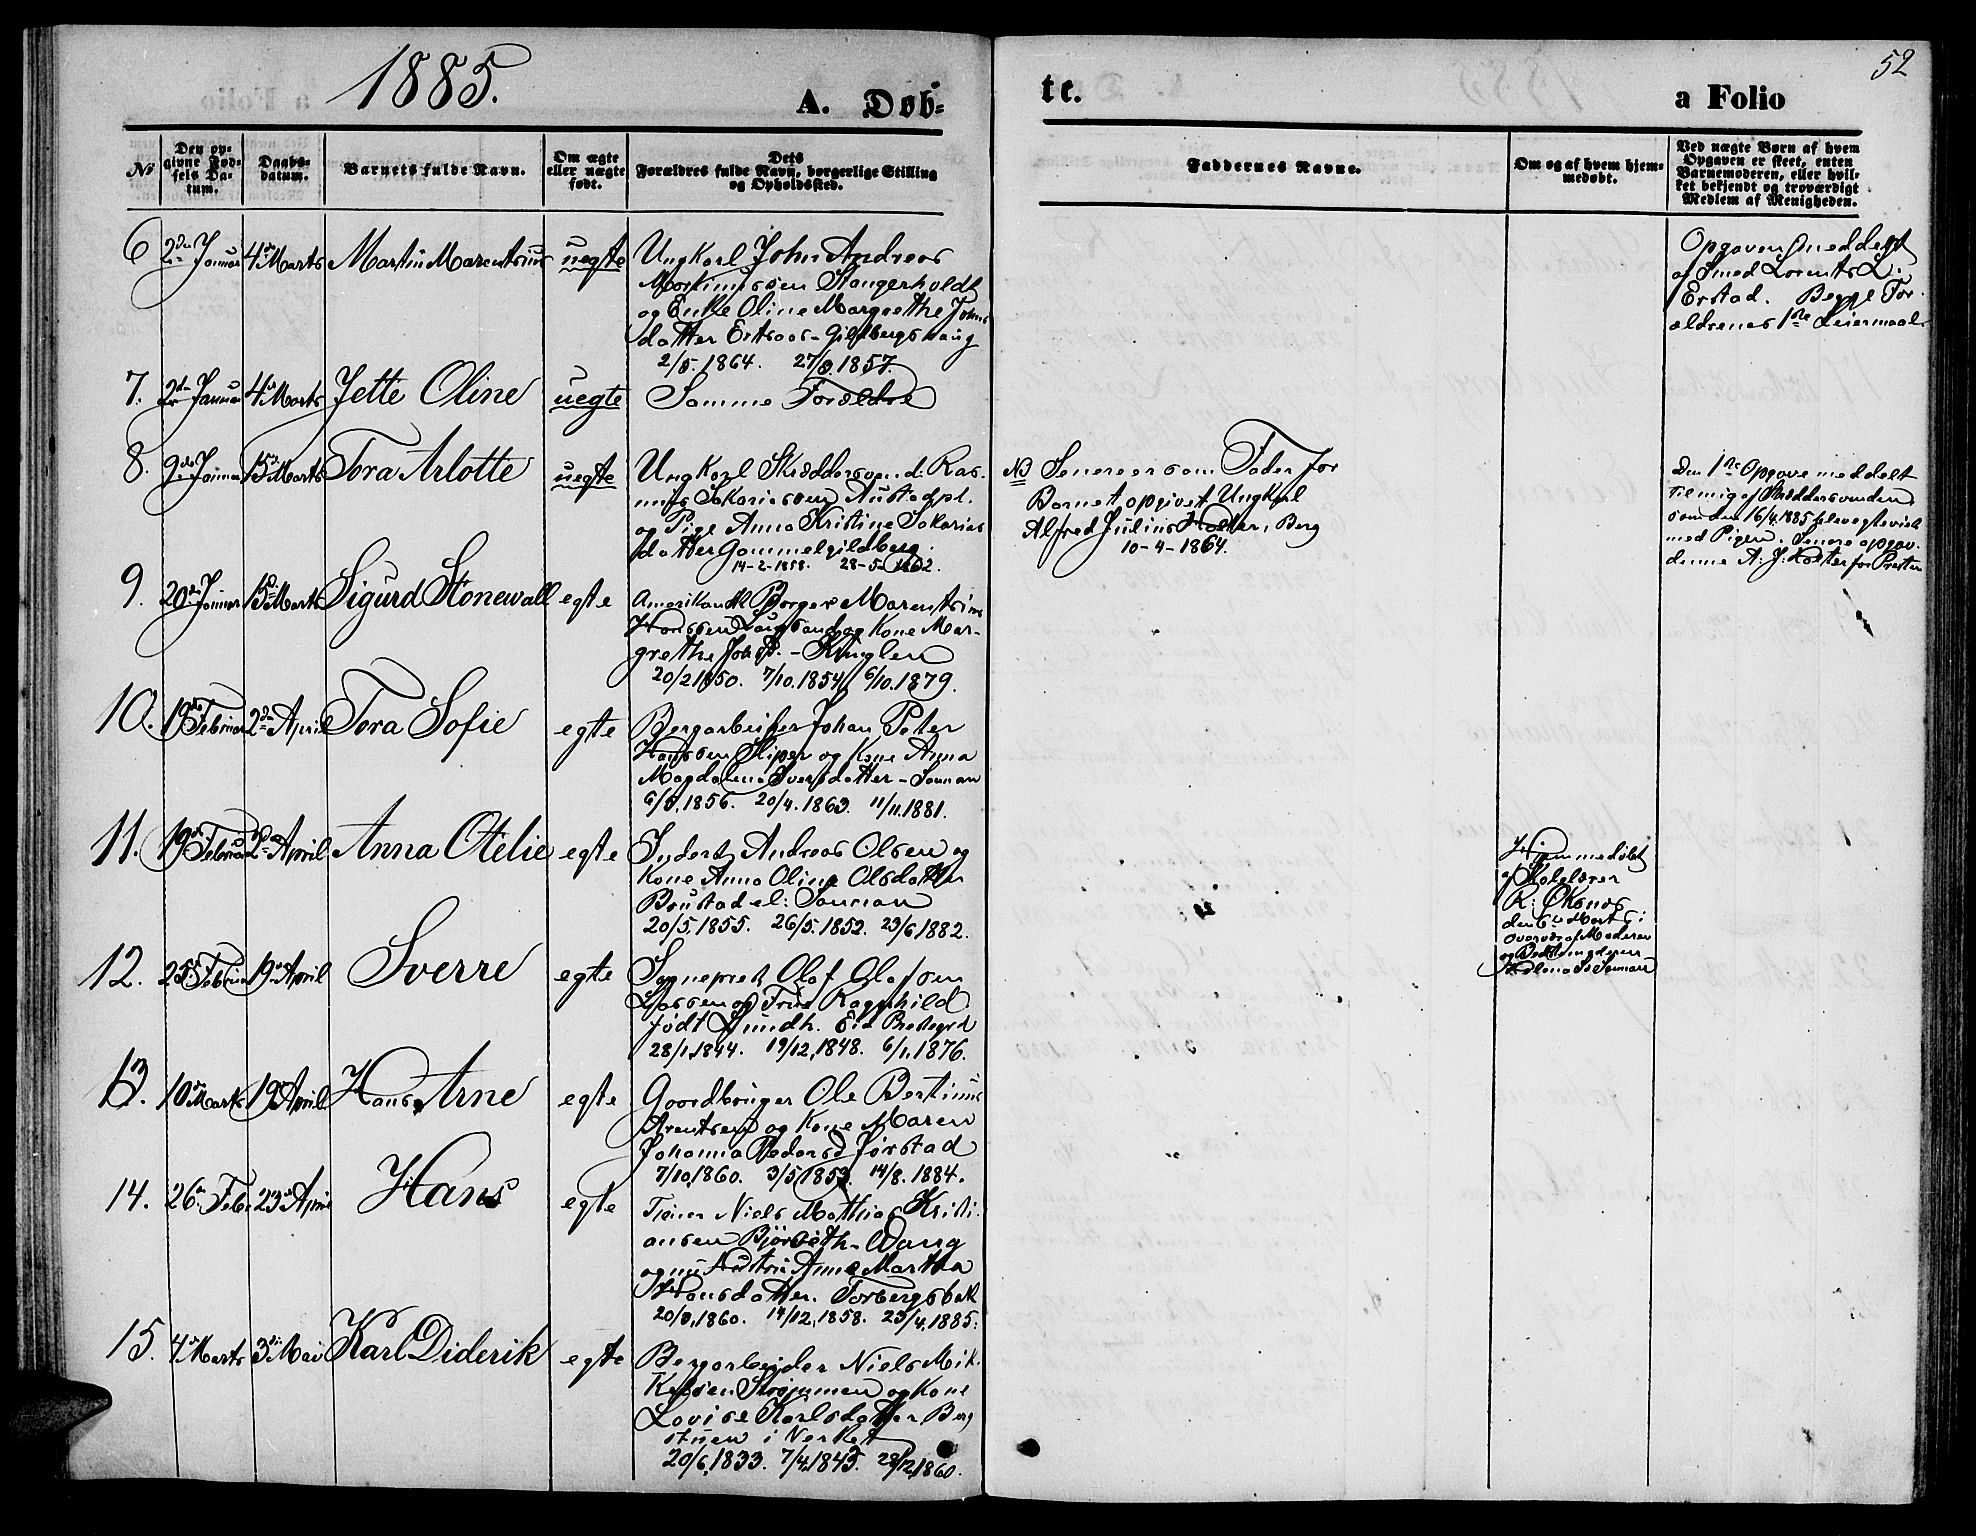 1885.
A. Døb-
te.
a Folio
52
No
Den op-
givne Fød-
sels Da-
tum.
Daabs-
datum.
Barnets fulde Navn.
Om ægte
eller uægte
født.
Dets
Forældres fulde Navn, borgerlige Stilling
og Opholdssted.
Faddernes Navne.
Om og af hvem hjem-
medøbt.
Ved uægte Børn af hvem
Opgaven er skeet, enten
Barnemoderen, eller hvil-
ket bekjendt og troværdigt
Medlem af Menigheden.
6 2den Januar 4de Marts Martin Marentsius uegte Ungkarl John Andreas
Stangerholdt
og Enke Oline Margrethe Johns
datter
2/5. 1864. 27/8. 1857.
Opgaven meddelt
af Smed Lorents L.
Erstad. Begge For-
ældrenes 1ste Leiermaal
7. 2den Januar 4de Marts Jette Oline uegte Samme Forældre
8. 9de Januar 15de Marts Tora Arlotte uegte Ungkarl Skræddersvend Ras-
mus Sakariassen Austadpl.
og Pige Anna Kristine Sakarias
datter Gammelgildberg.
14-2-1858. 28-5-1862.
NB Senere er som Fader for
Barnet opgivet Ungkarl
Alfred Julius Holter, Berg
10-4-1864.
Den 1ste Opgave meddelt
til mig af Skræddersvenden
som den 16/4 1885 blev egteviet
med Pigen. Senere opgav
denne A. J. Holter for Presten
9. 20de Januar 15de Marts Sigurd Stonewall egte Amerikansk Borger Marentsius
Hanssen og Kone Mar-
grethe Johsd. - Kinglen
20/2 1850. 7/10. 1854. 6/10. 1879.
10. 19de Februar 2den April Tora Sofie egte Bergarbeider Johan Peter
Hanssen Sliper og Kone Anna
Magdalena Iversdatter - Sannan
6/8. 1856. 20/4. 1863. 11/11. 1881.
11. 19de Februar 2den April Anna Otelie egte Inderst Andreas Olsen og
Kone Anna Oline Olsdatter
Boustad el: Sannan
20/5. 1855. 26/5. 1852. 23/6 1882.
Hjemmedøbt
af Skolelærer
R: Øksnes
den 6te Marts i
overvær af Moderen
og
12. 25de Februar 19de April Sverre egte Sognepræst Olaf Olafsen
Lassen og Frue Ragnhild
født Lundh. Eid Prestegrd
28/1. 1844. 19/12, 1848. 6/1. 1876.
13. 10de Marts 19de April Hans Arne egte Gaardbruger Ole Bertinus
Arentsen og Kone Maren
Johanna Pedersd Jørstad
7/10, 1860. 3/5, 1853. 14/8. 1884.
14. 26de Feb. 23de April Hans egte Tjener Niels Mathias Kristi-
ansen Bjørseth - Vang
og nu Hustru Anne Martha
Hansdatter. Forbergsbak
20/8, 1860. 14/12, 1858. 23/4. 1885.
15. 4de Marts 3die Mai Karl Diderik egte Bergarbeider Niels Mik-
kelsen Strømmen og Kone
Lovise Karlsdatter Berg
stuen i Verket
20/6, 1833. 7/4, 1843. 28/12, 1860.